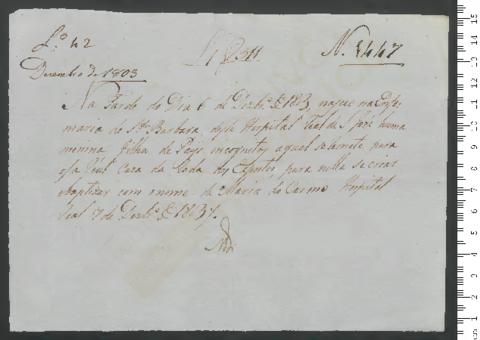 L.º 42
N. 1447
Dezembro de 1803
Na Tarde do Dia 6 de Dezbr.º de 1803, nasceu na Enfer
maria de Sta Barbara deste Hospital Real de S. José huma
menina filha de Pays incognitos, a qual se remete para
essa Real Caza da Roda dos Expostos, para nella se criar
e baptizar com o nome de Maria do Carmo Hospital
Real 7 de Dezbr.º de 1803.